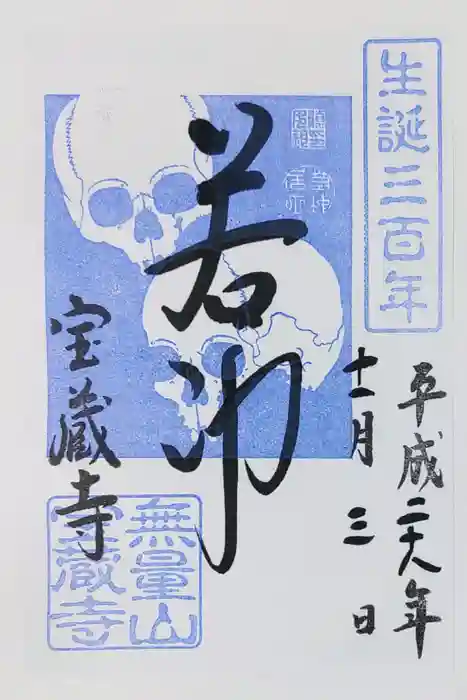 生誕三百年
平成二十八年
十一月三日
若冲
若冲居士
宝蔵寺
無量山
宝蔵寺